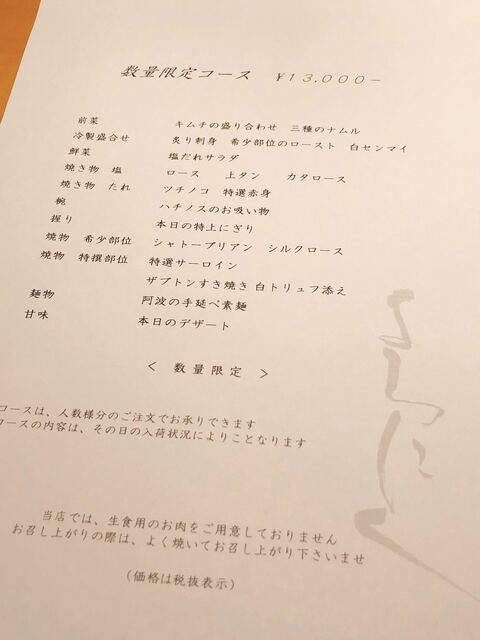 数量限定コース ¥13,000－
前菜 キムチの盛り合わせ 三種のナムル
冷製盛合せ 炙り刺身 希少部位のロースト 白センマイ
鮮菜 塩だれサラダ
焼き物 塩 ロース 上タン カタロース
焼き物 たれ ツチノコ 特選赤身
椀 ハチノスのお吸い物
握り 本日の特上にぎり
焼物 希少部位 シャトーブリアン シルクロース
焼物 特撰部位 特選サーロイン
ザブトンすき焼き 白トリュフ添え
麺物 阿波の手延べ素麺
甘味 本日のデザート
＜ 数量限定 ＞
コースは、人数様分のご注文でお承りできます
コースの内容は、その日の入荷状況によりことなります
当店では、生食用のお肉をご用意しておりません
お召し上がりの際は、よく焼いてお召し上がり下さいませ
（価格は税抜表示）
よろにく